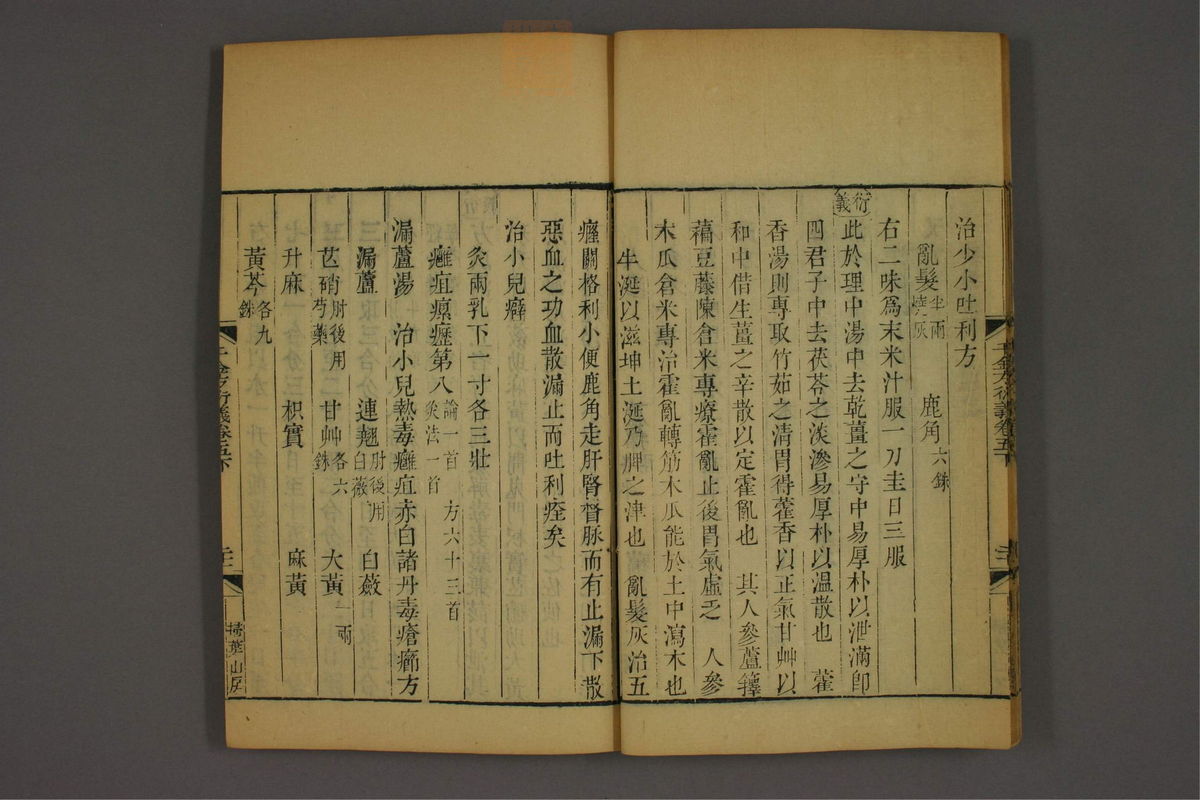 治少小吐利方
亂髮半兩燒灰 鹿角六銖
右二味爲末米汁服一刀圭日三服
衍義
此於理中湯中去乾薑之守中易厚朴以泄滿卽
四君子中去茯苓之淡滲易厚朴以溫散也 藿
香湯則專取竹茹之清胃得藿香以正氣甘艸以
和中借生薑之辛散以定霍亂也 其人參蘆籜
藊豆藤陳倉米專療霍亂止後胃氣虛乏 人參
木瓜倉米專治霍亂轉筋木瓜能於土中瀉木也
牛涎以滋坤土涎乃脾之津也 亂髮灰治五
千金方衍義卷五下
癃關格利小便鹿角走肝腎督脉而有止漏下散
惡血之功血散漏止而吐利痊矣
治小兒癖
灸兩乳下一寸各三壯
癰疽瘰癧第八論一首 方六十三首 灸法一首
漏蘆湯 治小兒熱毒癰疽赤白諸丹毒瘡癤方
漏蘆 連翹肘後用白薇 白蘞
芒硝肘後用芍藥 甘艸各六銖 大黃一兩
升麻 枳實 麻黃
黃芩各九銖
千金方衍義卷五下
掃葉山房